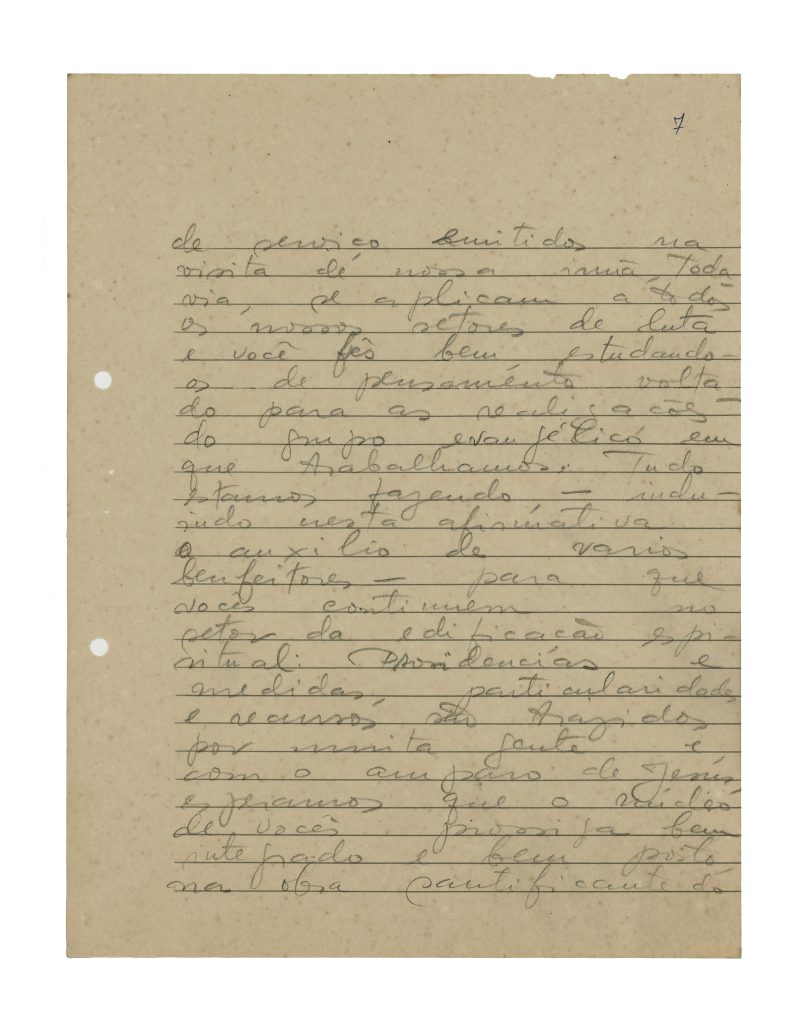 7
de serviço emitidos na
visita de nossa irmã, toda
via, se aplicam a todos
os nossos setores de luta
e você fês bem estudando-
os de pensamento volta
do para as realizações
do grupo evangélico em
que trabalhamos. Tudo
estamos fazendo — inclu-
indo nesta afirmativa
o auxilio de varios
benfeitores — para que
vocês continuem no
setor da edificação espi-
ritual. Providencias e
medidas, particularidades
e recursos são trazidos
por muita gente e
com o amparo de Jesús
esperamos que o nucleo
de vocês prossiga bem
integrado e bem posto
na obra santificante do